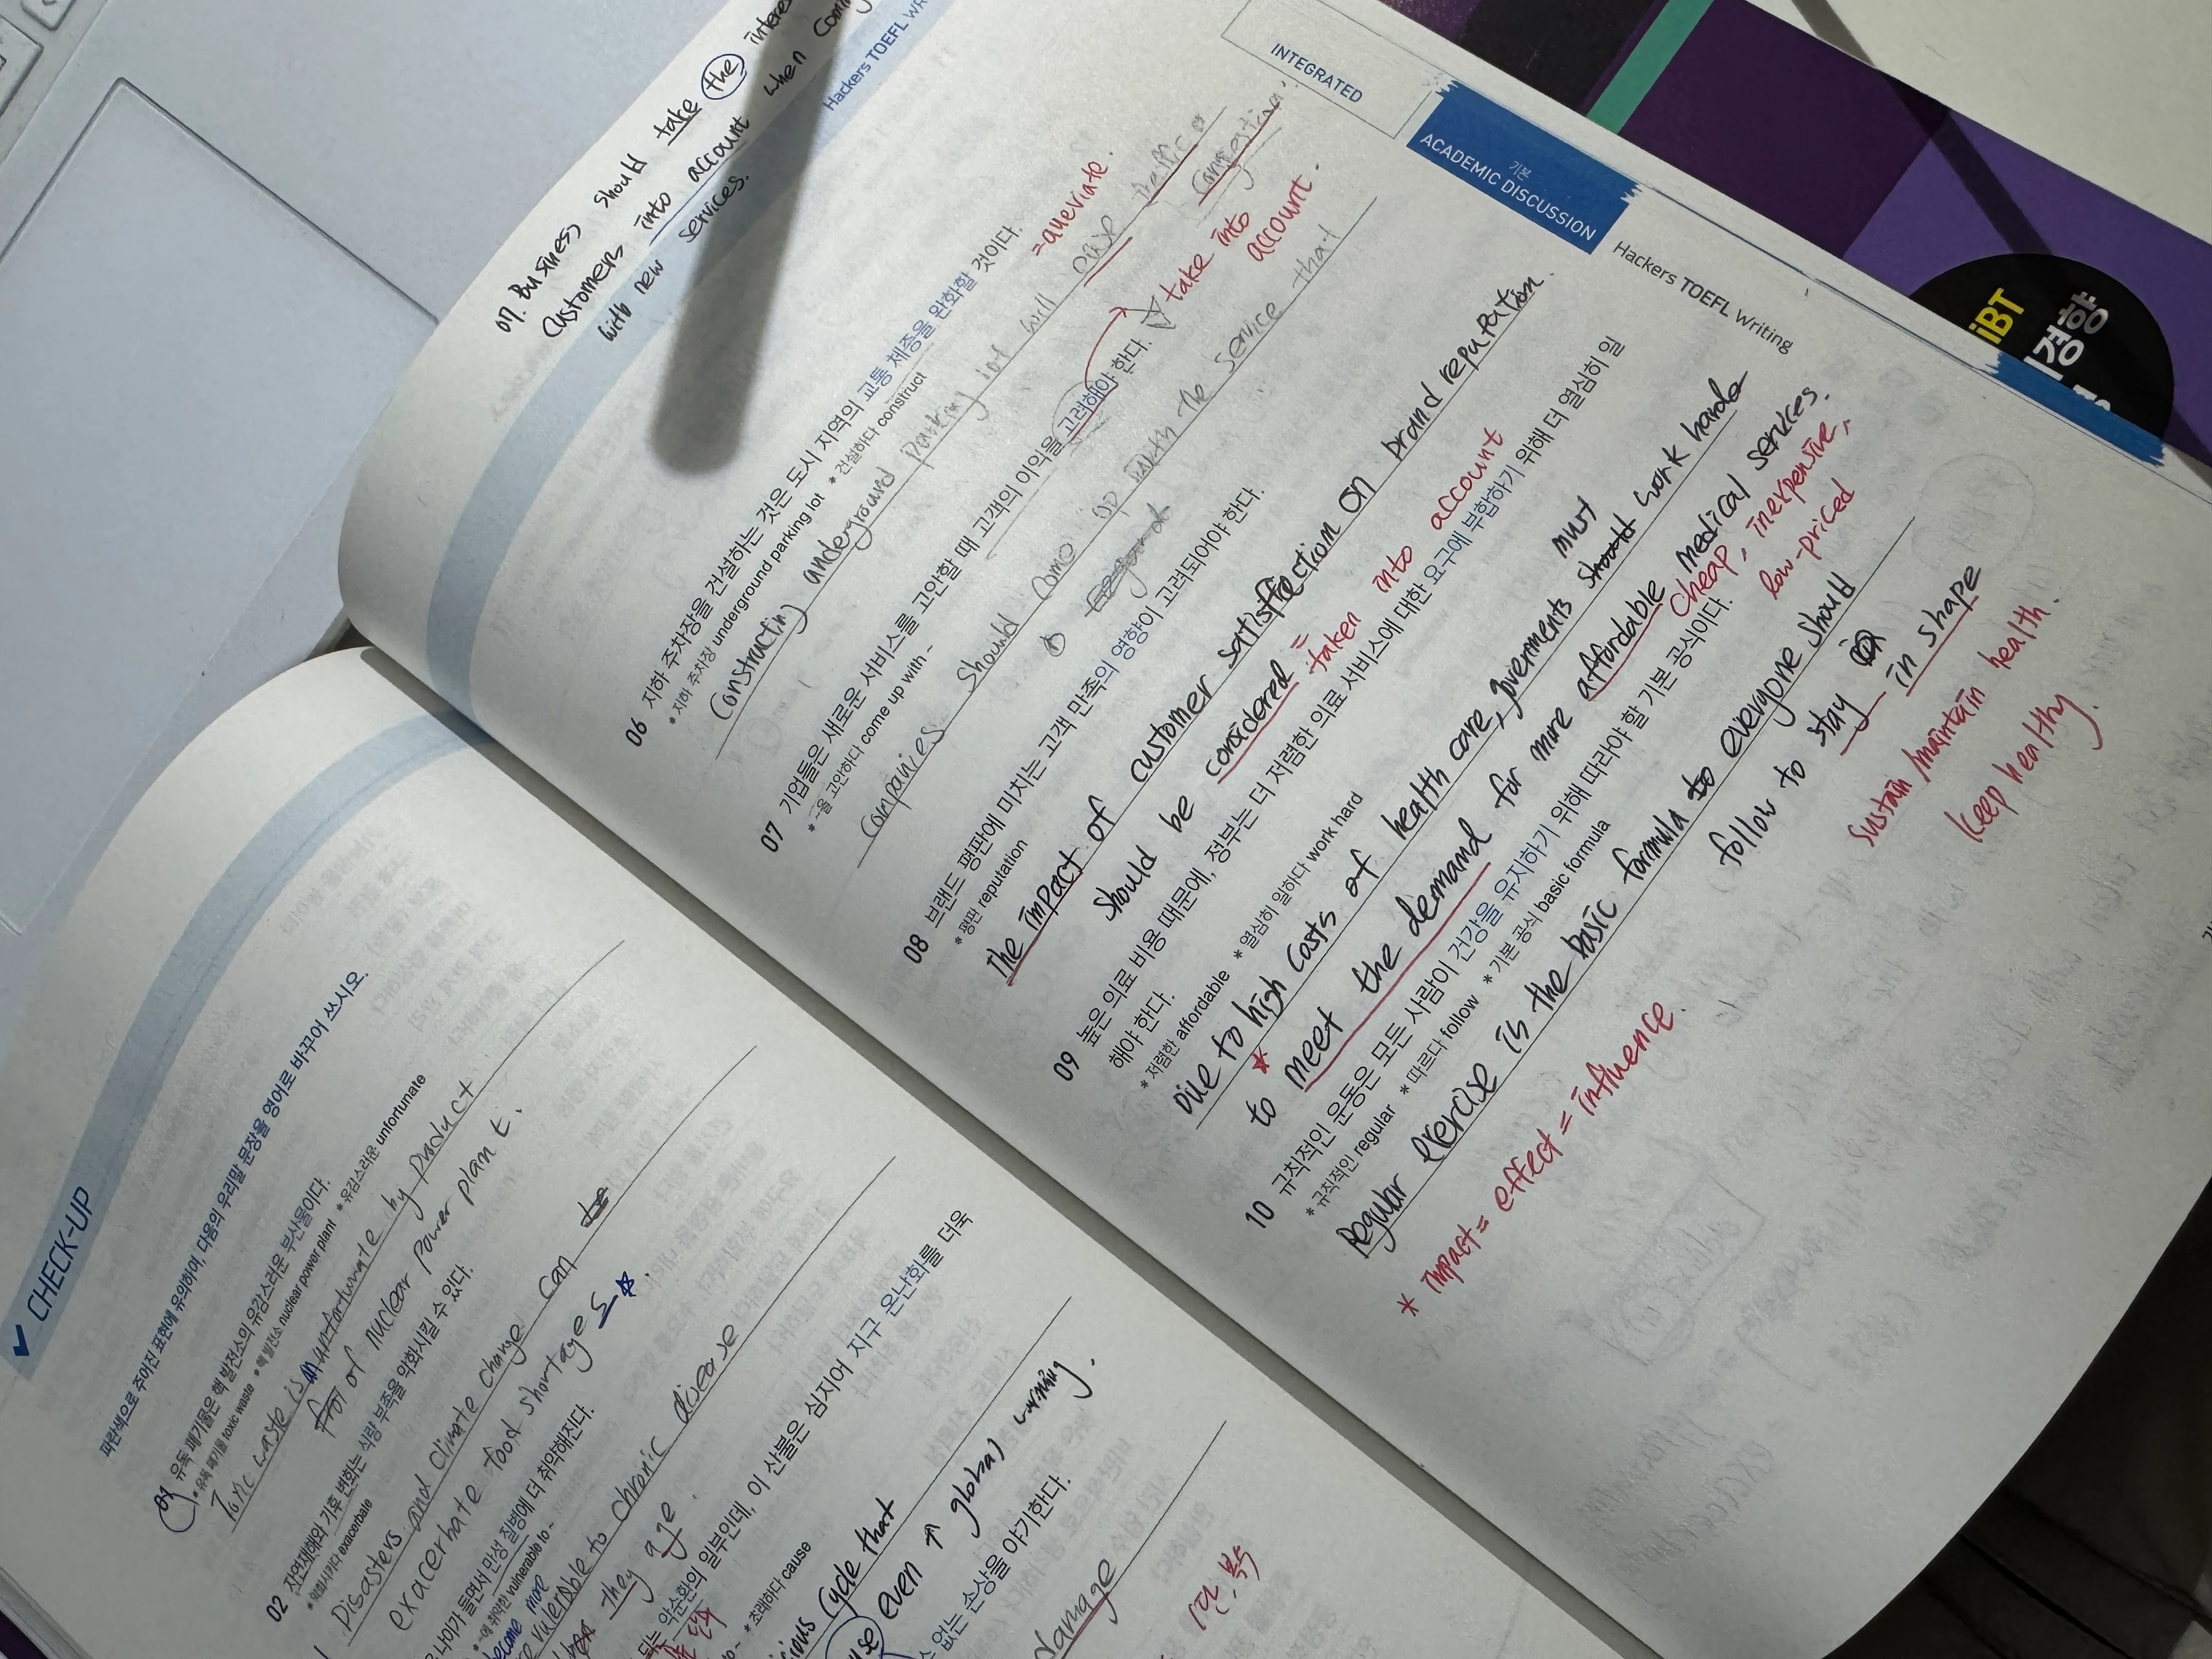 ✓ CHECK-UP
파란색으로 주어진 표현에 유의하여, 다음의 우리말 문장을 영어로 바꾸어 쓰시오.
01 유독 폐기물은 핵 발전소의 유감스러운 부산물이다.
* 유독 폐기물 toxic waste * 핵 발전소 nuclear power plant * 유감스러운 unfortunate
Toxic waste is an unfortunate by product
of nuclear power plant.
02 자연재해와 기후 변화는 식량 부족을 악화시킬 수 있다.
* 악화시키다 exacerbate
Disasters and climate change can
exacerbate food shortages.
나이가 들면서 만성 질병에 더 취약해진다.
* ~에 취약한 vulnerable to ~
become more
vulerable to chronic disease
they age.
되는 악순환의 일부인데, 이 산불은 심지어 지구 온난화를 더욱
* 초래하다 cause
cycle that
even ↑ global warming.
수 없는 손상을 야기한다.
damage
07. Business should take the
customers into account when
with new services.
Hackers TOEFL
06 지하 주차장을 건설하는 것은 도시 지역의 교통 체증을 완화할 것이다.
* 지하 주차장 underground parking lot * 건설하다 construct
= alleviate.
Constructing underground parking lot will ease traffic
congestion.
07 기업들은 새로운 서비스를 고안할 때 고객의 이익을 고려해야 한다.
* ~을 고안하다 come up with ~
take into
account.
Companies should come up with the service that
08 브랜드 평판에 미치는 고객 만족의 영향이 고려되어야 한다.
* 평판 reputation
The impact of customer satisfaction on brand reputation.
should be considered = taken into account
09 높은 의료 비용 때문에, 정부는 더 저렴한 의료 서비스에 대한 요구에 부합하기 위해 더 열심히 일
해야 한다.
* 저렴한 affordable * 열심히 일하다 work hard
must
Due to high costs of health care, goverments should work harder
to meet the demand for more affordable medical services.
cheap, inexpensive,
low-priced
10 규칙적인 운동은 모든 사람이 건강을 유지하기 위해 따라야 할 기본 공식이다.
* 규칙적인 regular * 따르다 follow * 기본 공식 basic formula
Regular exercise is the basic formula to everyone should
follow to stay in shape
sustain/maintain health.
keep healthy.
* impact = effect = influence
INTEGRATED
기본
ACADEMIC DISCUSSION
Hackers TOEFL Writing
iBT
경향